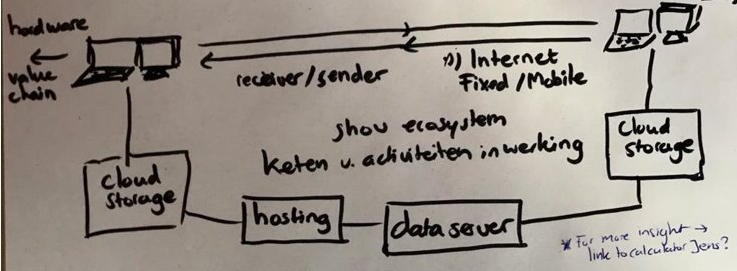 hardware
value
chain
receiver/sender
Internet
Fixed/Mobile
show ecosystem
keten v. activiteiten in werking
cloud
storage
cloud
storage
hosting
data server
* For more insight →
link to calculator Jens?